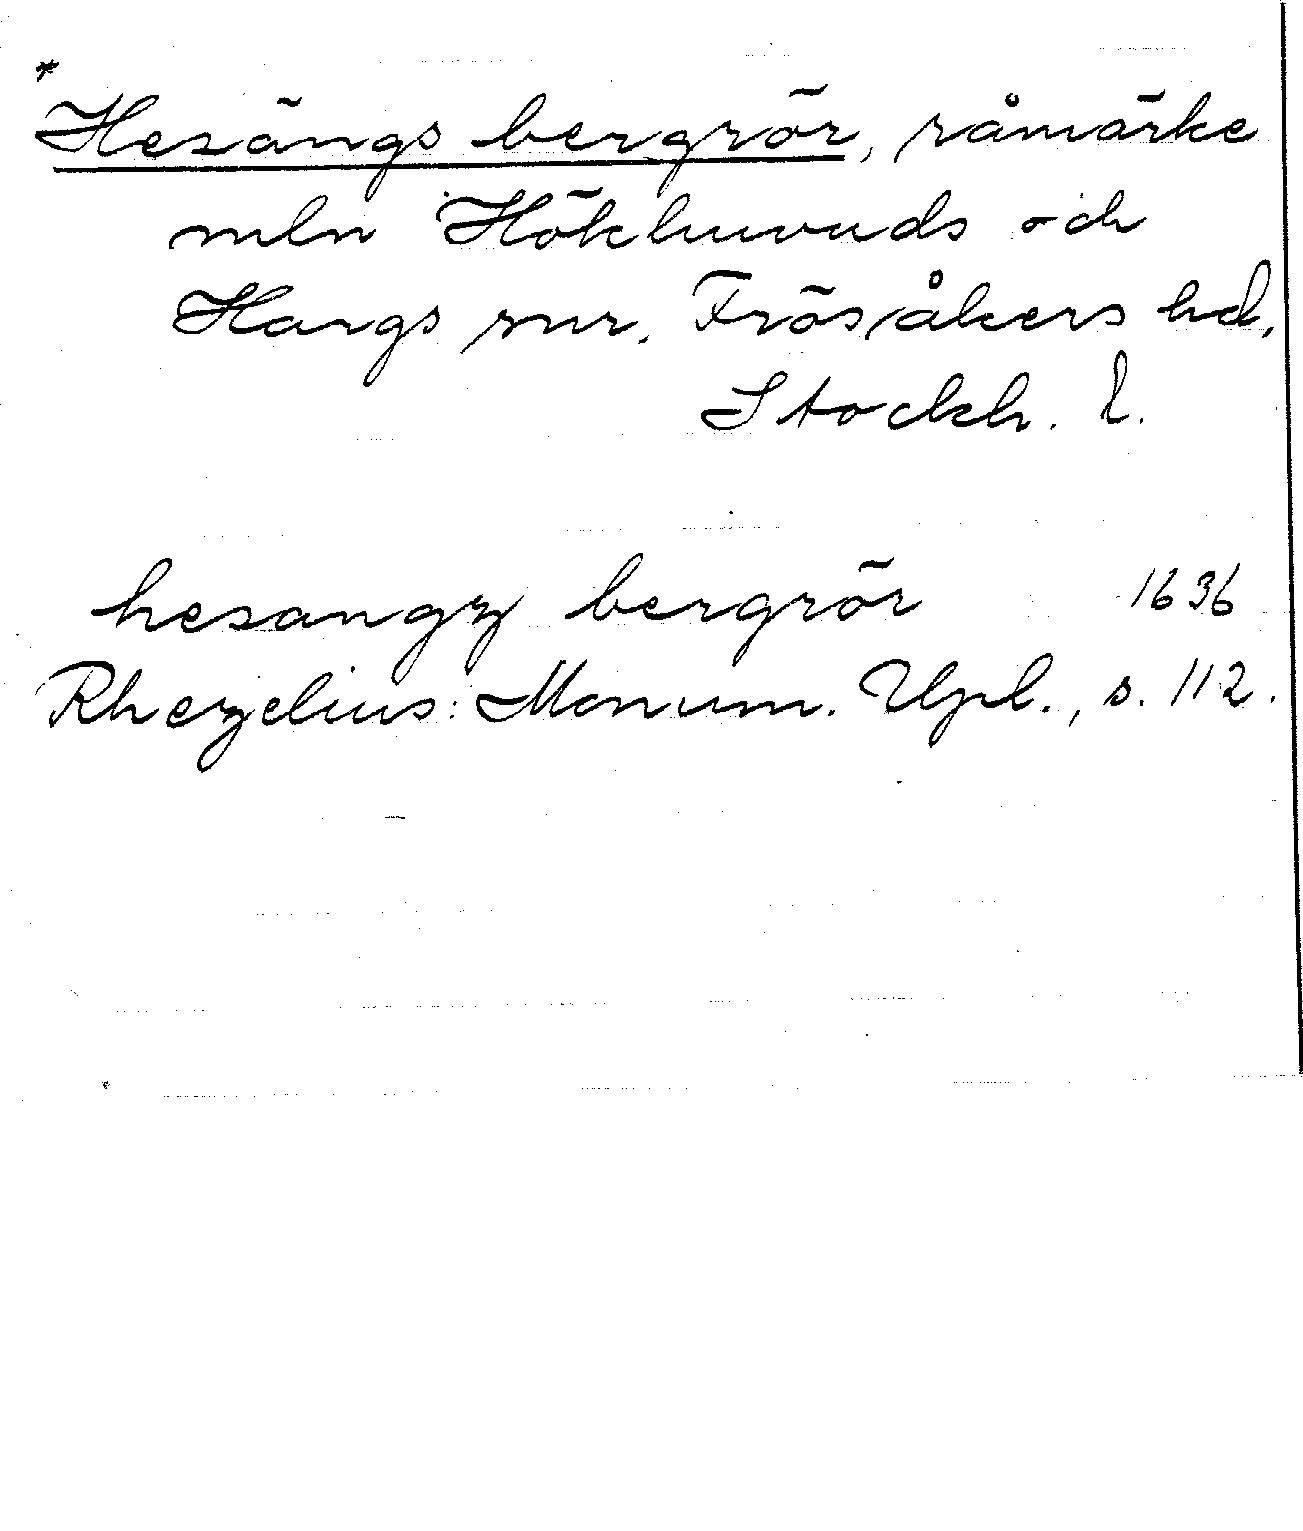 *
Hesängs bergrör, råmärke
mln Hökhuvuds och
Hargs snr. Frösåkers hd,
Stockh. l.
hesangz bergrör 1636
Rhezelius: Monum. Upl., s. 112.